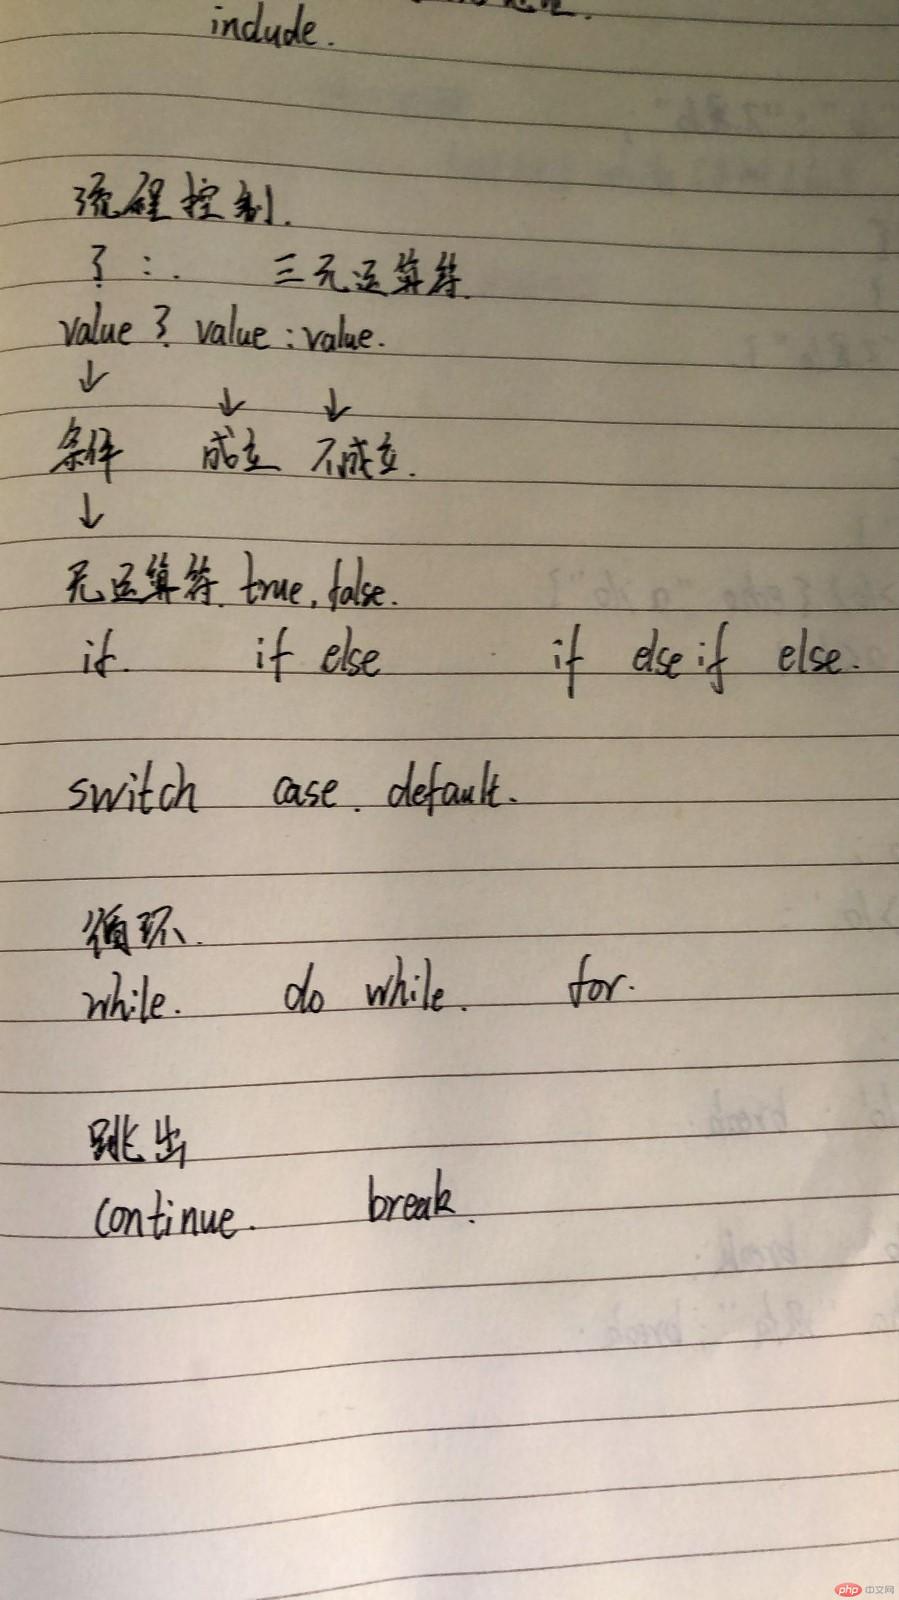 include.
流程控制.
? : .	三元运算符.
value ? value : value.
↓ ↓ ↓
条件 成立 不成立.
↓
无运算符. true, false.
if. if else if else if else.
switch case. default.
循环.
while. do while. for.
跳出
continue. break.
php 中文网